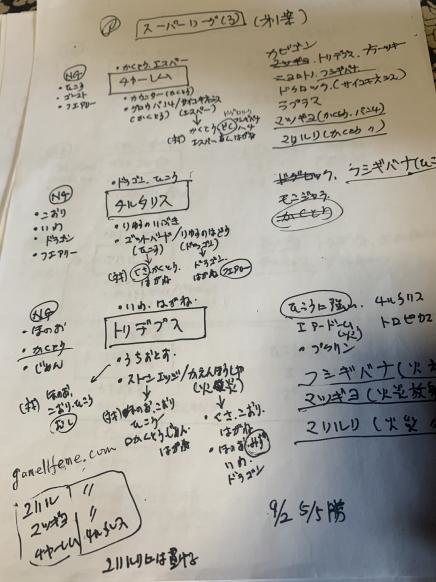 スーパーリーグ(3) (別案)
NG
・ひこう
・ゴースト
・フェアリー
・かくとう、エスパー
チャーレム
・カウンター(かくとう)
・グロウパンチ/サイコキネシス
(かくとう) (エスパー)
カビゴン
マッギョ、トリデプス、ブラッキー
ニョロトノ、フシギバナ
ドククラゲ、(サイコキネシス)
ラプラス
マッギョ(かくとう、パンチ)
マリルリ(かくとう 〃)
NG
・こおり
・いわ
・ドラゴン
・フェアリー
・ドラゴン、ひこう
チルタリス
・りゅうのいぶき
・ゴッドバード/りゅうのはどう
(ひこう) (ドラゴン)
(対) くさ、かくとう
はがね
ドラゴン
はがね フェアリー
フシギバナ(ひこ
モンジャラ
NG
・ほのお
・かくとう
・じめん
・いわ、はがね
トリデプス
・うちおとす
・ストーンエッジ/かえんほうしゃ
(火炎)
(対) ほのお
こおり、ひこう
むし
ひこう
はがね
・くさ、こおり
はがね
・ほのお、みず
いわ
ドラゴン
ひこうに強い
チルタリス
エアームド
トロピウス
・プクリン
フシギバナ(火
マッギョ(火炎放射
マリルリ(火炎
gamelifeme.com
マリルリ 〃
マッギョ 〃
チャーレム チルタリス
9/2 5/5勝
マリルリには